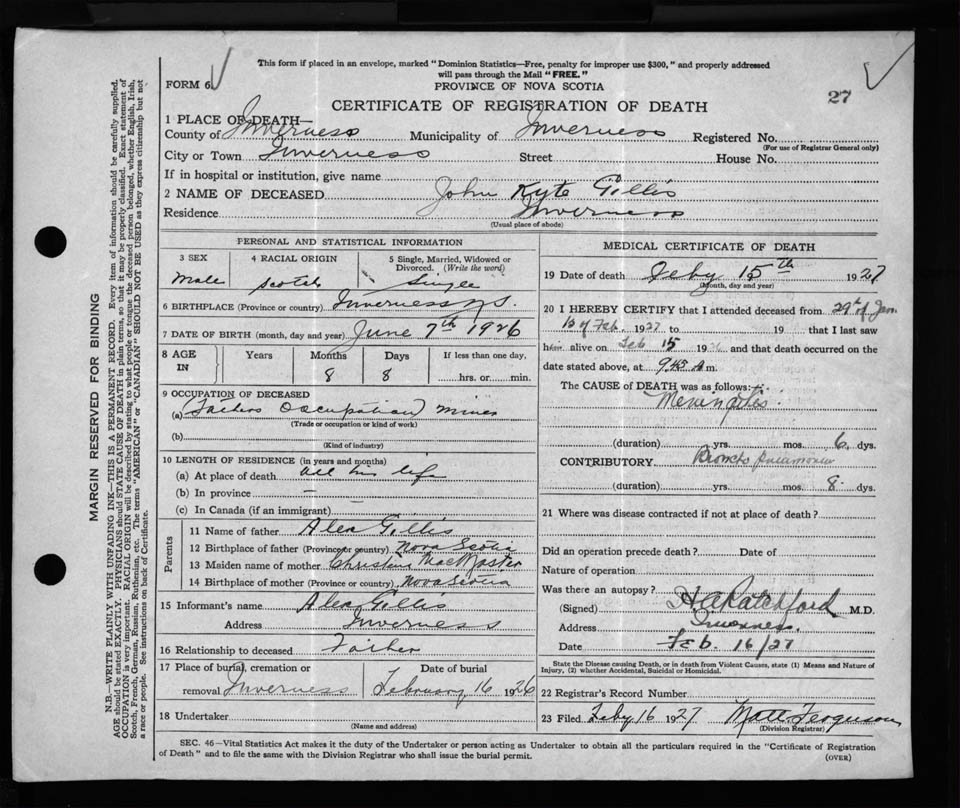 This form if placed in an envelope, marked "Dominion Statistics—Free, penalty for improper use $300," and properly addressed
will pass through the Mail "FREE."
FORM 6
PROVINCE OF NOVA SCOTIA
27
CERTIFICATE OF REGISTRATION OF DEATH
1 PLACE OF DEATH—
County of Inverness Municipality of Inverness Registered No.
(For use of Registrar General only)
City or Town Inverness Street House No.
If in hospital or institution, give name
2 NAME OF DECEASED John Kyte Gillis
Residence Inverness
(Usual place of abode)
PERSONAL AND STATISTICAL INFORMATION
3 SEX 4 RACIAL ORIGIN 5 Single, Married, Widowed or
Divorced. (Write the word)
Male Scotch Single
6 BIRTHPLACE (Province or country) Inverness N.S.
7 DATE OF BIRTH (month, day and year) June 7th 1926
8 AGE Years Months Days If less than one day,
IN 8 8 hrs. or min.
9 OCCUPATION OF DECEASED
(a) Fathers Occupation Miner
(Trade or occupation or kind of work)
(b)
(Kind of industry)
10 LENGTH OF RESIDENCE (in years and months)
(a) At place of death all his life
(b) In province –
(c) In Canada (if an immigrant)
Parents
11 Name of father Alex Gillis
12 Birthplace of father (Province or country) Nova Scotia
13 Maiden name of mother Christina MacMaster
14 Birthplace of mother (Province or country) Nova Scotia
15 Informant's name Alex Gillis
Address Inverness
16 Relationship to deceased Father
17 Place of burial, cremation or Date of burial
removal Inverness February 16 1926
18 Undertaker
(Name and address)
MEDICAL CERTIFICATE OF DEATH
19 Date of death Feby 15th 1927
(Month, day and year)
20 I HEREBY CERTIFY that I attended deceased from 29th of Jan.
of Feb. 1927 to 19 that I last saw
him alive on Feb 15 19 and that death occurred on the
date stated above, at 9.45 A m.
The CAUSE of DEATH was as follows:
Meningitis
(duration) yrs. mos. 6 dys.
CONTRIBUTORY Broncho pneumonia
(duration) yrs. mos. 8 dys.
21 Where was disease contracted if not at place of death?
Did an operation precede death? Date of
Nature of operation
Was there an autopsy?
(Signed) H A Ratchford M.D.
Address Inverness.
Date Feb. 16/27
State the Disease causing Death, or in death from Violent Causes, state (1) Means and Nature of
Injury, (2) whether Accidental, Suicidal or Homicidal.
22 Registrar's Record Number
23 Filed Feby 16 1927 Matt. Ferguson
(Division Registrar)
SEC. 46—Vital Statistics Act makes it the duty of the Undertaker or person acting as Undertaker to obtain all the particulars required in the "Certificate of Registration
of Death" and to file the same with the Division Registrar who shall issue the burial permit.
(OVER)
MARGIN RESERVED FOR BINDING
N.B.—WRITE PLAINLY WITH UNFADING INK—THIS IS A PERMANENT RECORD. Every item of information should be carefully supplied.
AGE should be stated EXACTLY. PHYSICIANS should STATE CAUSE OF DEATH in plain terms, so that it may be properly classified. Exact statement of
OCCUPATION is very important. RACIAL ORIGIN will be described by stating to what people or tongue the deceased person belonged, whether English, Irish,
Scotch, French, German, Russian, Ruthenian, etc. The terms "AMERICAN" or "CANADIAN" SHOULD NOT BE USED as they express citizenship but not
a race or people. See instructions on back of Certificate.